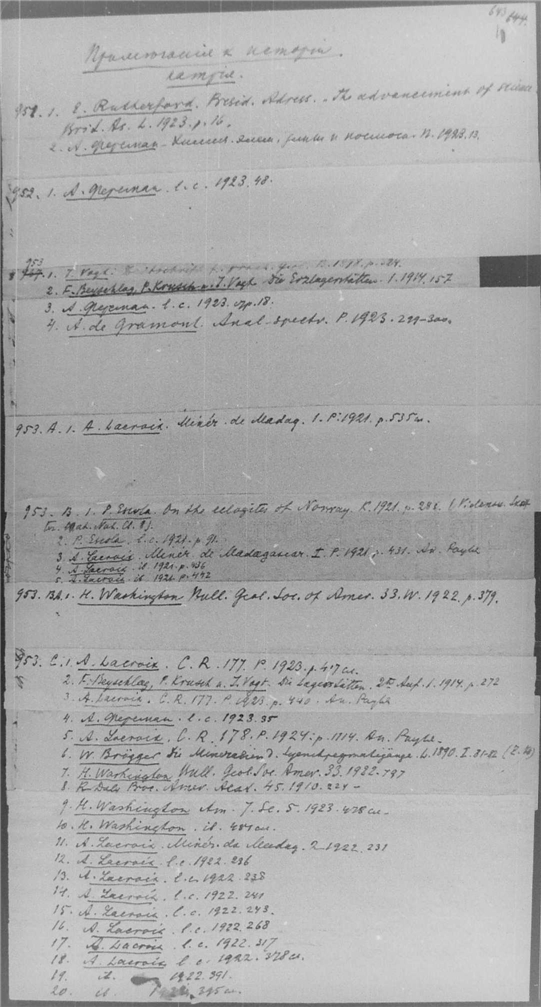 643 644.
Примечанія к исторіи
натрія.
951. 1. E. Rutherford. Presid. Adress. The advancement of science
Brit. As. L. 1923. p. 16.
2. А. Ферсман. Химич. элем. земли и космоса. П. 1923.
952. 1. А. Ферсман. l. c. 1923. 48.
953
1. J. Vogt.
2. F. Beyschlag, P. Krusch u. J. Vogt. Die Erzlagerstätten. 1. 1914. 157
3. А. Ферсман. l. c. 1923. стр. 18.
4. A. de Gramont. Anal. spectr. P. 1923. 299-300.
953. A. 1. A. Lacroix. Minér. de Madag. 1. P. 1921. p. 535
953. B. 1. P. Escola. On the eclogites of Norway. K. 1921. p. (Vidensk.
Mat. Nat. Cl. 8).
2. P. Escola. l. c. 1921. p. 91.
3. A. Lacroix. Minér. de Madagascar. I. P. 1921. p. 431. Ан.
4. A. Lacroix. ib. 1921. p. 436
5. A. Lacroix. ib. 1921. p. 442
953. BA. 1. H. Washington. Bull. Geol. Soc. of Amer. 33. W. 1922. p. 379.
953. C. 1. A. Lacroix. C. R. 177. P. 1923. p. 417
2. F. Beyschlag, P. Krusch u. J. Vogt. Die Lagerstätten. 2te Auf. 1. 1914. p. 272
3. A. Lacroix. C. R. 177. P. 1923. p. 440. Ан.
4. А. Ферсман. l. c. 1923. 35
5. A. Lacroix. C. R. 178. P. 1924. p. 1114. Ан.
6. W. Brögger. Die Mineralien d. Syenitpegmatitgänge. L. 1890. I. 81-82
7. H. Washington. Bull. Geol. Soc. Amer. 33. 1922. 797
8. R. Daly. Proc. Amer. Acad. 45. 1910. 224
9. H. Washington. Am. J. Sc. 5. 1923. 478
10. H. Washington. ib. 484
11. A. Lacroix. Minér. de Madag. 2. 1922. 231
12. A. Lacroix. l. c. 1922. 236
13. A. Lacroix. l. c. 1922. 238
14. A. Lacroix. l. c. 1922. 241
15. A. Lacroix. l. c. 1922. 243.
16. A. Lacroix. l. c. 1922. 268
17. A. Lacroix. l. c. 1922. 317
18. A. Lacroix. l. c. 1922. 378
19. ib. 1922. 391.
20. ib. 395